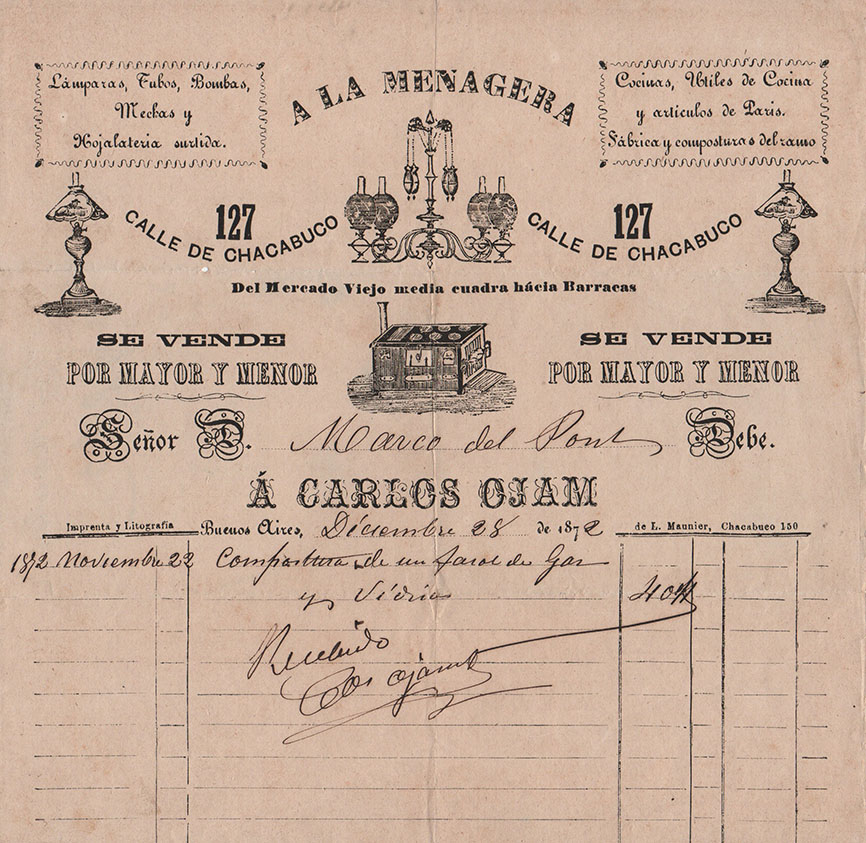 A LA MENAGERA
Lámparas, Tubos, Bombas,
Mechas y
Hojalateria surtida.
Cocinas, Utiles de Cocina
y articulos de Paris.
Fábrica y composturas del ramo
127
CALLE DE CHACABUCO
127
CALLE DE CHACABUCO
Del Mercado Viejo media cuadra hácia Barracas
SE VENDE
POR MAYOR Y MENOR
SE VENDE
POR MAYOR Y MENOR
Señor D. Marco del Pont Debe.
Á CARLOS OJAM
Imprenta y Litografia
Buenos Aires, Diciembre 28 de 1872
de L. Maunier, Chacabuco 150
1872 Noviembre 22 Compostura de un farol de Gas
y Vidrio 40
Recibido
Cos Ojam